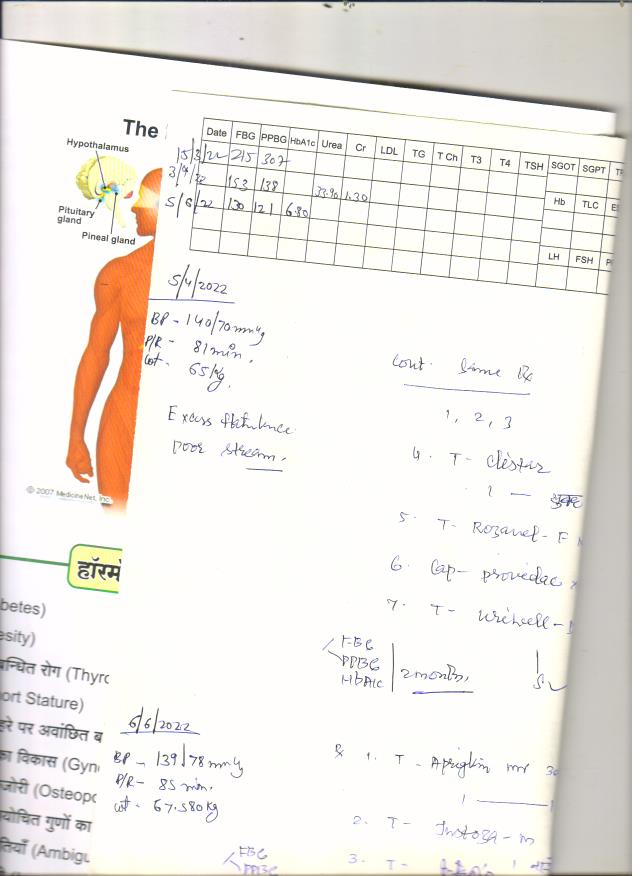 The
Hypothalamus
Pituitary
gland
Pineal gland
© 2007 MedicineNet, Inc.
Date FBG PPBG HbA1c Urea Cr LDL TG T Ch T3 T4 TSH SGOT SGPT
15/3/22 215 307
3/4/22 153 138 33.90 1.30
Hb TLC
5/6/22 130 121 6.80
LH FSH
5/4/2022
BP - 140/70 mmHg
P/R - 81 min.
wt - 65 kg.
Excess flatulence
Poor stream.
Cont. Same Rx
1, 2, 3
4. T-
1 —
5. T- Rozavel-F
6. Cap- provedac
7. T- Uriwell-
FBG
PPBG
HbA1c
2 months.
हॉरमो
betes)
esity)
बन्धित रोग (Thyro
ort Stature)
हरे पर अवांछित ब
का विकास (Gyn
जोरी (Osteopo
योचित गुणों का
तियाँ (Ambigu
6/6/2022
BP - 139/78 mmHg
P/R - 85 min.
wt - 67.580 kg
FBG
PPBG
Rx 1. T- mr 30
1 — 1
2. T- - m
3. T-